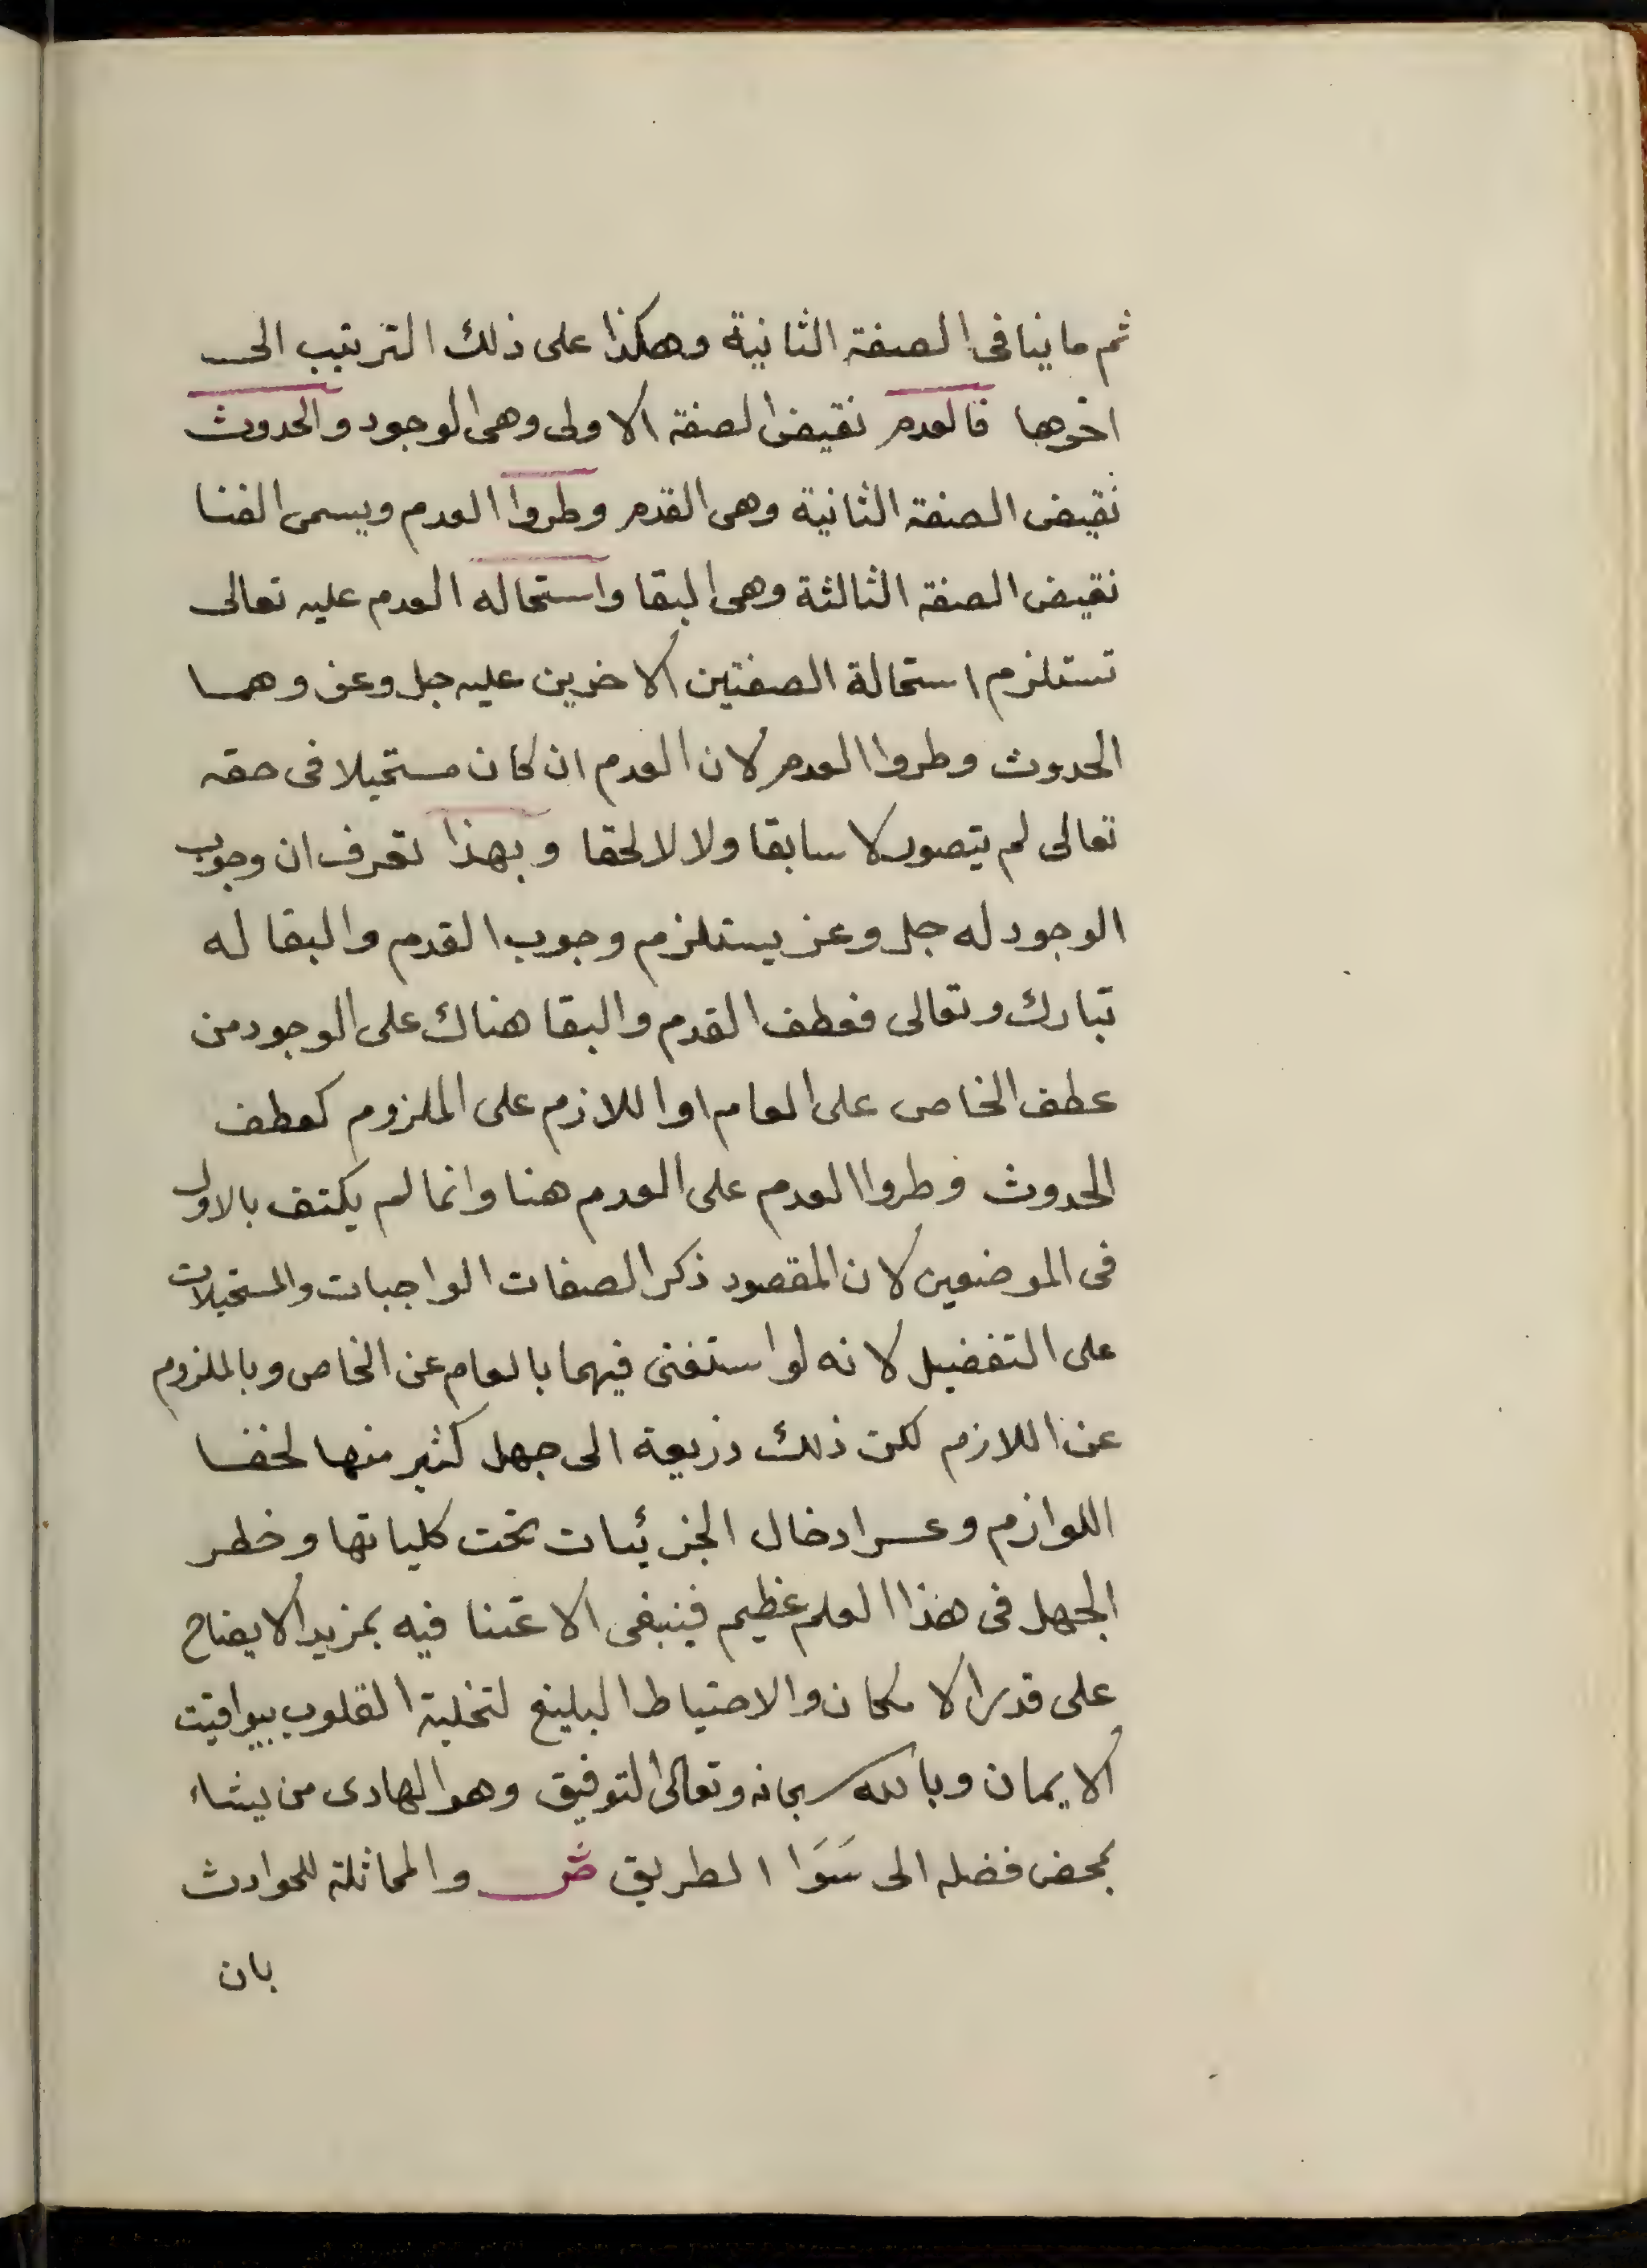 ثم ما ينافى الصفة الثانية وهكذا على ذلك الترتيب الى
اخرها فالعدم نقيض الصفة الاولى وهى الوجود والحدوث
نقيض الصفة الثانية وهى القدم وطروا العدم ويسمى الفنا
نقيض الصفة الثالثة وهى البقا واستحاله العدم عليه تعالى
تستلزم استحالة الصفتين الاخرين عليه جل وعز وهما
الحدوث وطروا العدم لان العدم ان كان مستحيلا فى حقه
تعالى لم يتصور لا سابقا ولا لالحقا وبهذا تعرف ان وجوب
الوجود له جل وعز يستلزم وجوب القدم والبقا له
تبارك وتعالى فعطف القدم والبقا هناك على الوجود من
عطف الخاص على العام او اللازم على الملزوم كعطف
الحدوث وطروا العدم على العدم هنا وانما لم يكتف بالاول
فى الموضعين لان المقصود ذكر الصفات الواجبات والمستحيلات
على التفضيل لانه لو استغنى فيهما بالعام عن الخاص وبالملزوم
عن اللازم لكن ذلك ذريعة الى جهل كثير منها لخفا
اللوازم وعسر ادخال الجزئيات تحت كلياتها وخطر
الجهل فى هذا العلم عظيم فينبغى الاعتنا فيه بمزيد الايضاح
على قدر الامكان والاحتياط البليغ لتخلية القلوب بيواقيت
الايمان وبالله سبحانه وتعالى التوفيق وهو الهادى من يشاء
بمحض فضله الى سَوَا الطريق ش والمماثلة للحوادث
بان